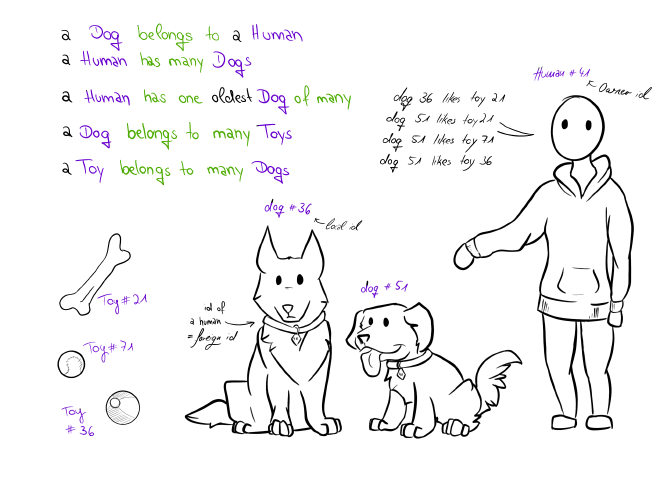 a Dog belongs to a Human
a Human has many Dogs
a Human has one oldest Dog of many
a Dog belongs to many Toys
a Toy belongs to many Dogs
Human #41
Owner id
dog 36 likes toy 21
dog 51 likes toy 21
dog 51 likes toy 71
dog 51 likes toy 36
dog #36
local id
dog #51
id of
a human
= foregn id
Toy #21
Toy #71
Toy
#36